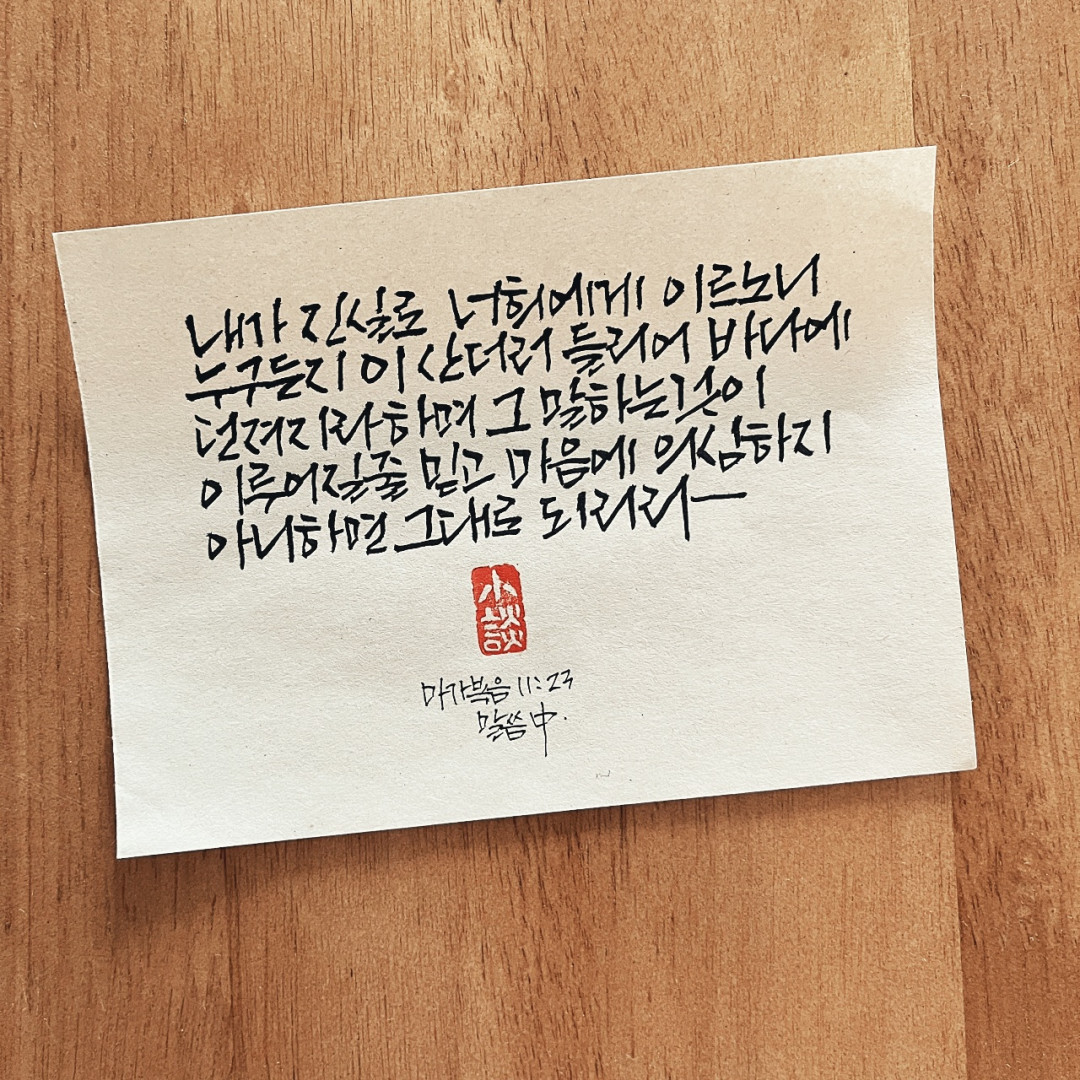 내가 진실로 너희에게 이르노니
누구든지 이 산더러 들리어 바다에
던져지라 하며 그 말하는것이
이루어질줄 믿고 마음에 의심하지
아니하면 그대로 되리라
小談
마가복음 11:23
말씀 中.